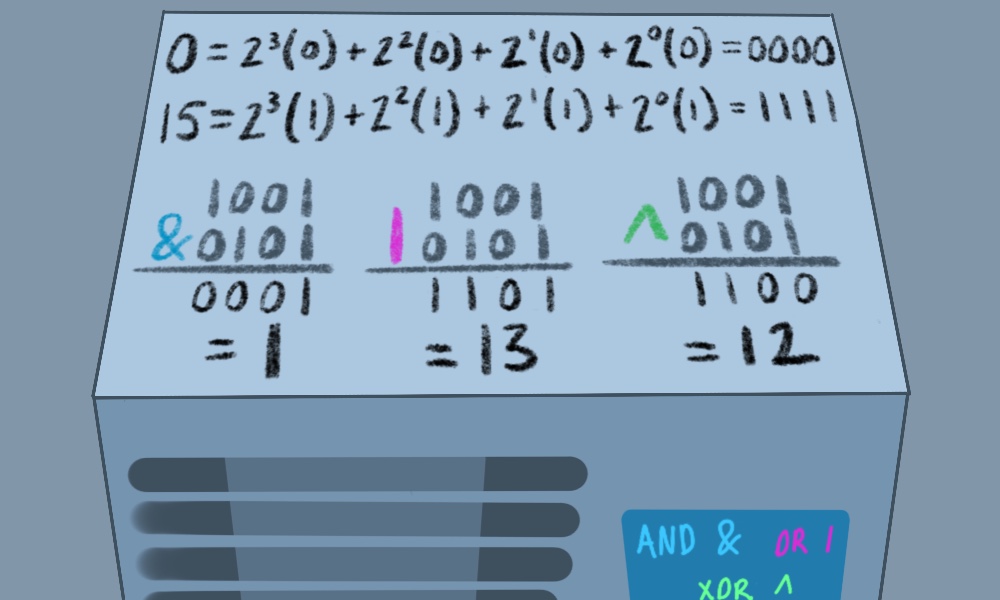 0 = 2³(0) + 2²(0) + 2¹(0) + 2⁰(0) = 0000
15 = 2³(1) + 2²(1) + 2¹(1) + 2⁰(1) = 1111
1001 1001 1001
& 0101 | 0101 ^ 0101
0001 1101 1100
= 1 = 13 = 12
AND & OR |
XOR ^